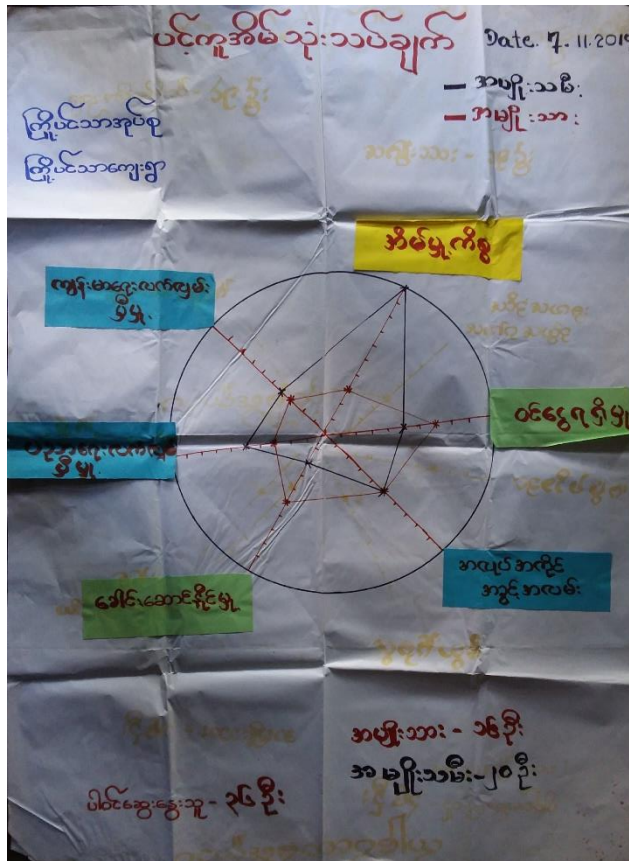 ပင့်ကူအိမ်သုံးသပ်ချက်
Date. 7.11.201
အမျိုးသမီး
အမျိုးသား
ကြို့ပင်သာအုပ်စု
ကြို့ပင်သာကျေးရွာ
အိမ်မှုကိစ္စ
ကျန်းမာရေးလက်လှမ်း
မှီမှု
ဝင်ငွေရရှိမှု
ပညာရေးလက်လှမ်း
မှီမှု
အလုပ်အကိုင်
အခွင့်အလမ်း
ခေါင်းဆောင်နိုင်မှု
အမျိုးသား - ၁၆ ဦး
အမျိုးသမီး - ၂၀ ဦး
ပါဝင်ဆွေးနွေးသူ - ၃၆ ဦး